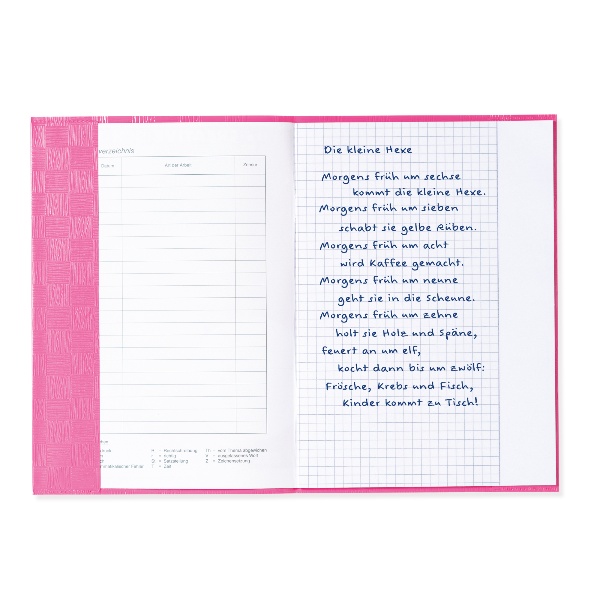 verzeichnis
Datum
Art der Arbeit
Die kleine Hexe
Morgens früh um sechse
kommt die kleine Hexe.
Morgens früh um sieben
schabt sie gelbe Rüben.
Morgens früh um acht
wird Kaffee gemacht.
Morgens früh um neune
geht sie in die Scheune.
Morgens früh um zehne
holt sie Holz und Späne,
feuert an um elf,
kocht dann bis um zwölf:
Frösche, Krebs und Fisch,
Kinder kommt zu Tisch!